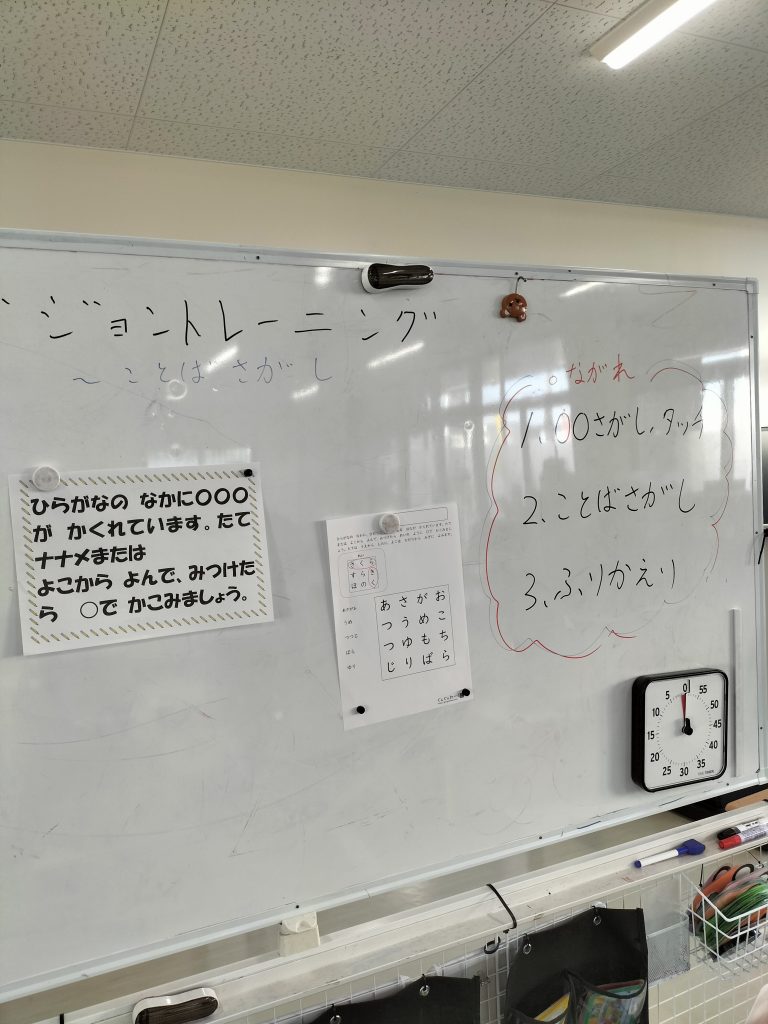 ジョントレーニング
～ことばさがし
ひらがなの なかに〇〇〇
が かくれています。たて
ナナメまたは
よこから よんで、みつけた
ら 〇で かこみましょう。
さくら
すらき
ほのく
あさがお
うめ
つつじ
ばら
ゆり
あさがお
つうめこ
つゆもち
じりばら
○ながれ
1、〇〇さがし、タッチ
2、ことばさがし
3、ふりかえり
0
55
50
45
40
35
30
25
20
15
10
5